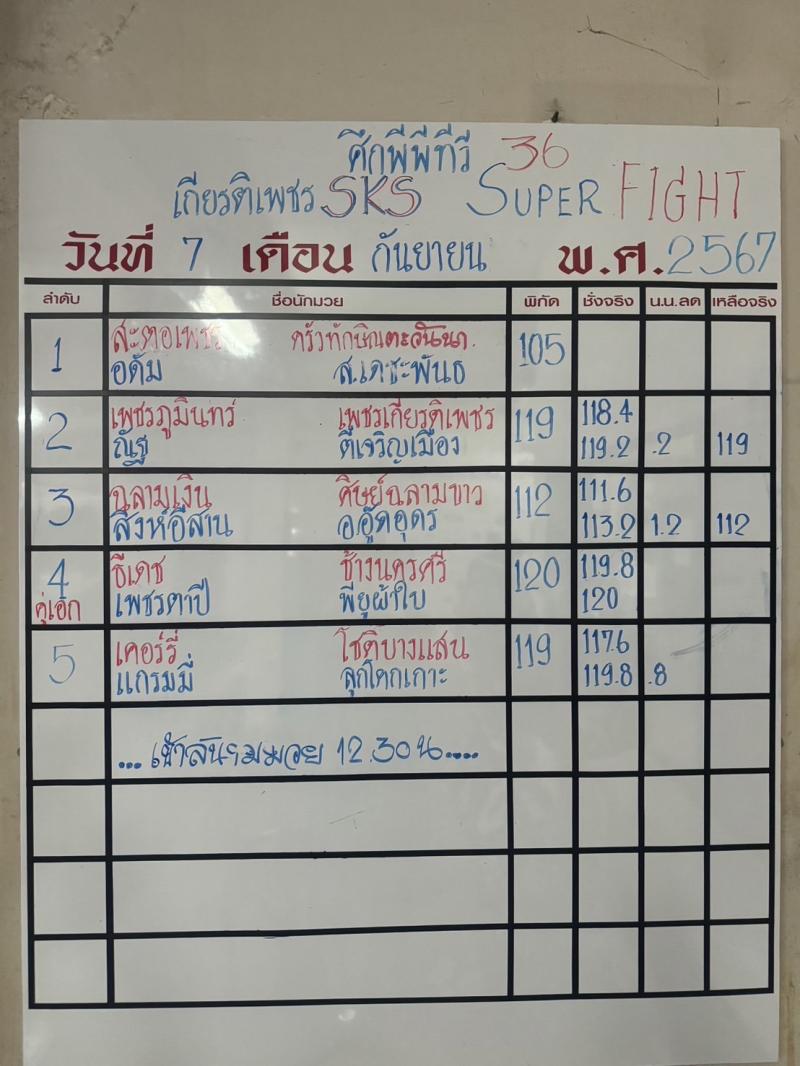 ศึกพีพีทีวี 36
เกียรติเพชร SKS SUPER FIGHT
วันที่ 7 เดือน กันยายน พ.ศ. 2567
ลำดับ ชื่อนักมวย พิกัด ชั่งจริง น.น.ลด เหลือจริง
1 สะตอเพชร ครัวทักษิณตะวันนา 105
อดัม ส.เดชะพันธ์
2 เพชรภูมินทร์ เพชรเกียรติเพชร 119 118.4
ณัฐ ตี๋เจริญเมือง 119.2 .2 119
3 ฉลามเงิน ศิษย์ฉลามขาว 112 111.6
สิงห์อีสาน อ.อู๊ดอุดร 113.2 1.2 112
4 ธีเดช ช้างนครศรี 120 119.8
คู่เอก เพชรตาปี พียูผ้าใบ 120
5 เคอร์รี่ โชติบางแสน 119 117.6
แกรมมี่ ลูกโคกเกาะ 119.8 .8
...เข้าสนามมวย 12.30 น....